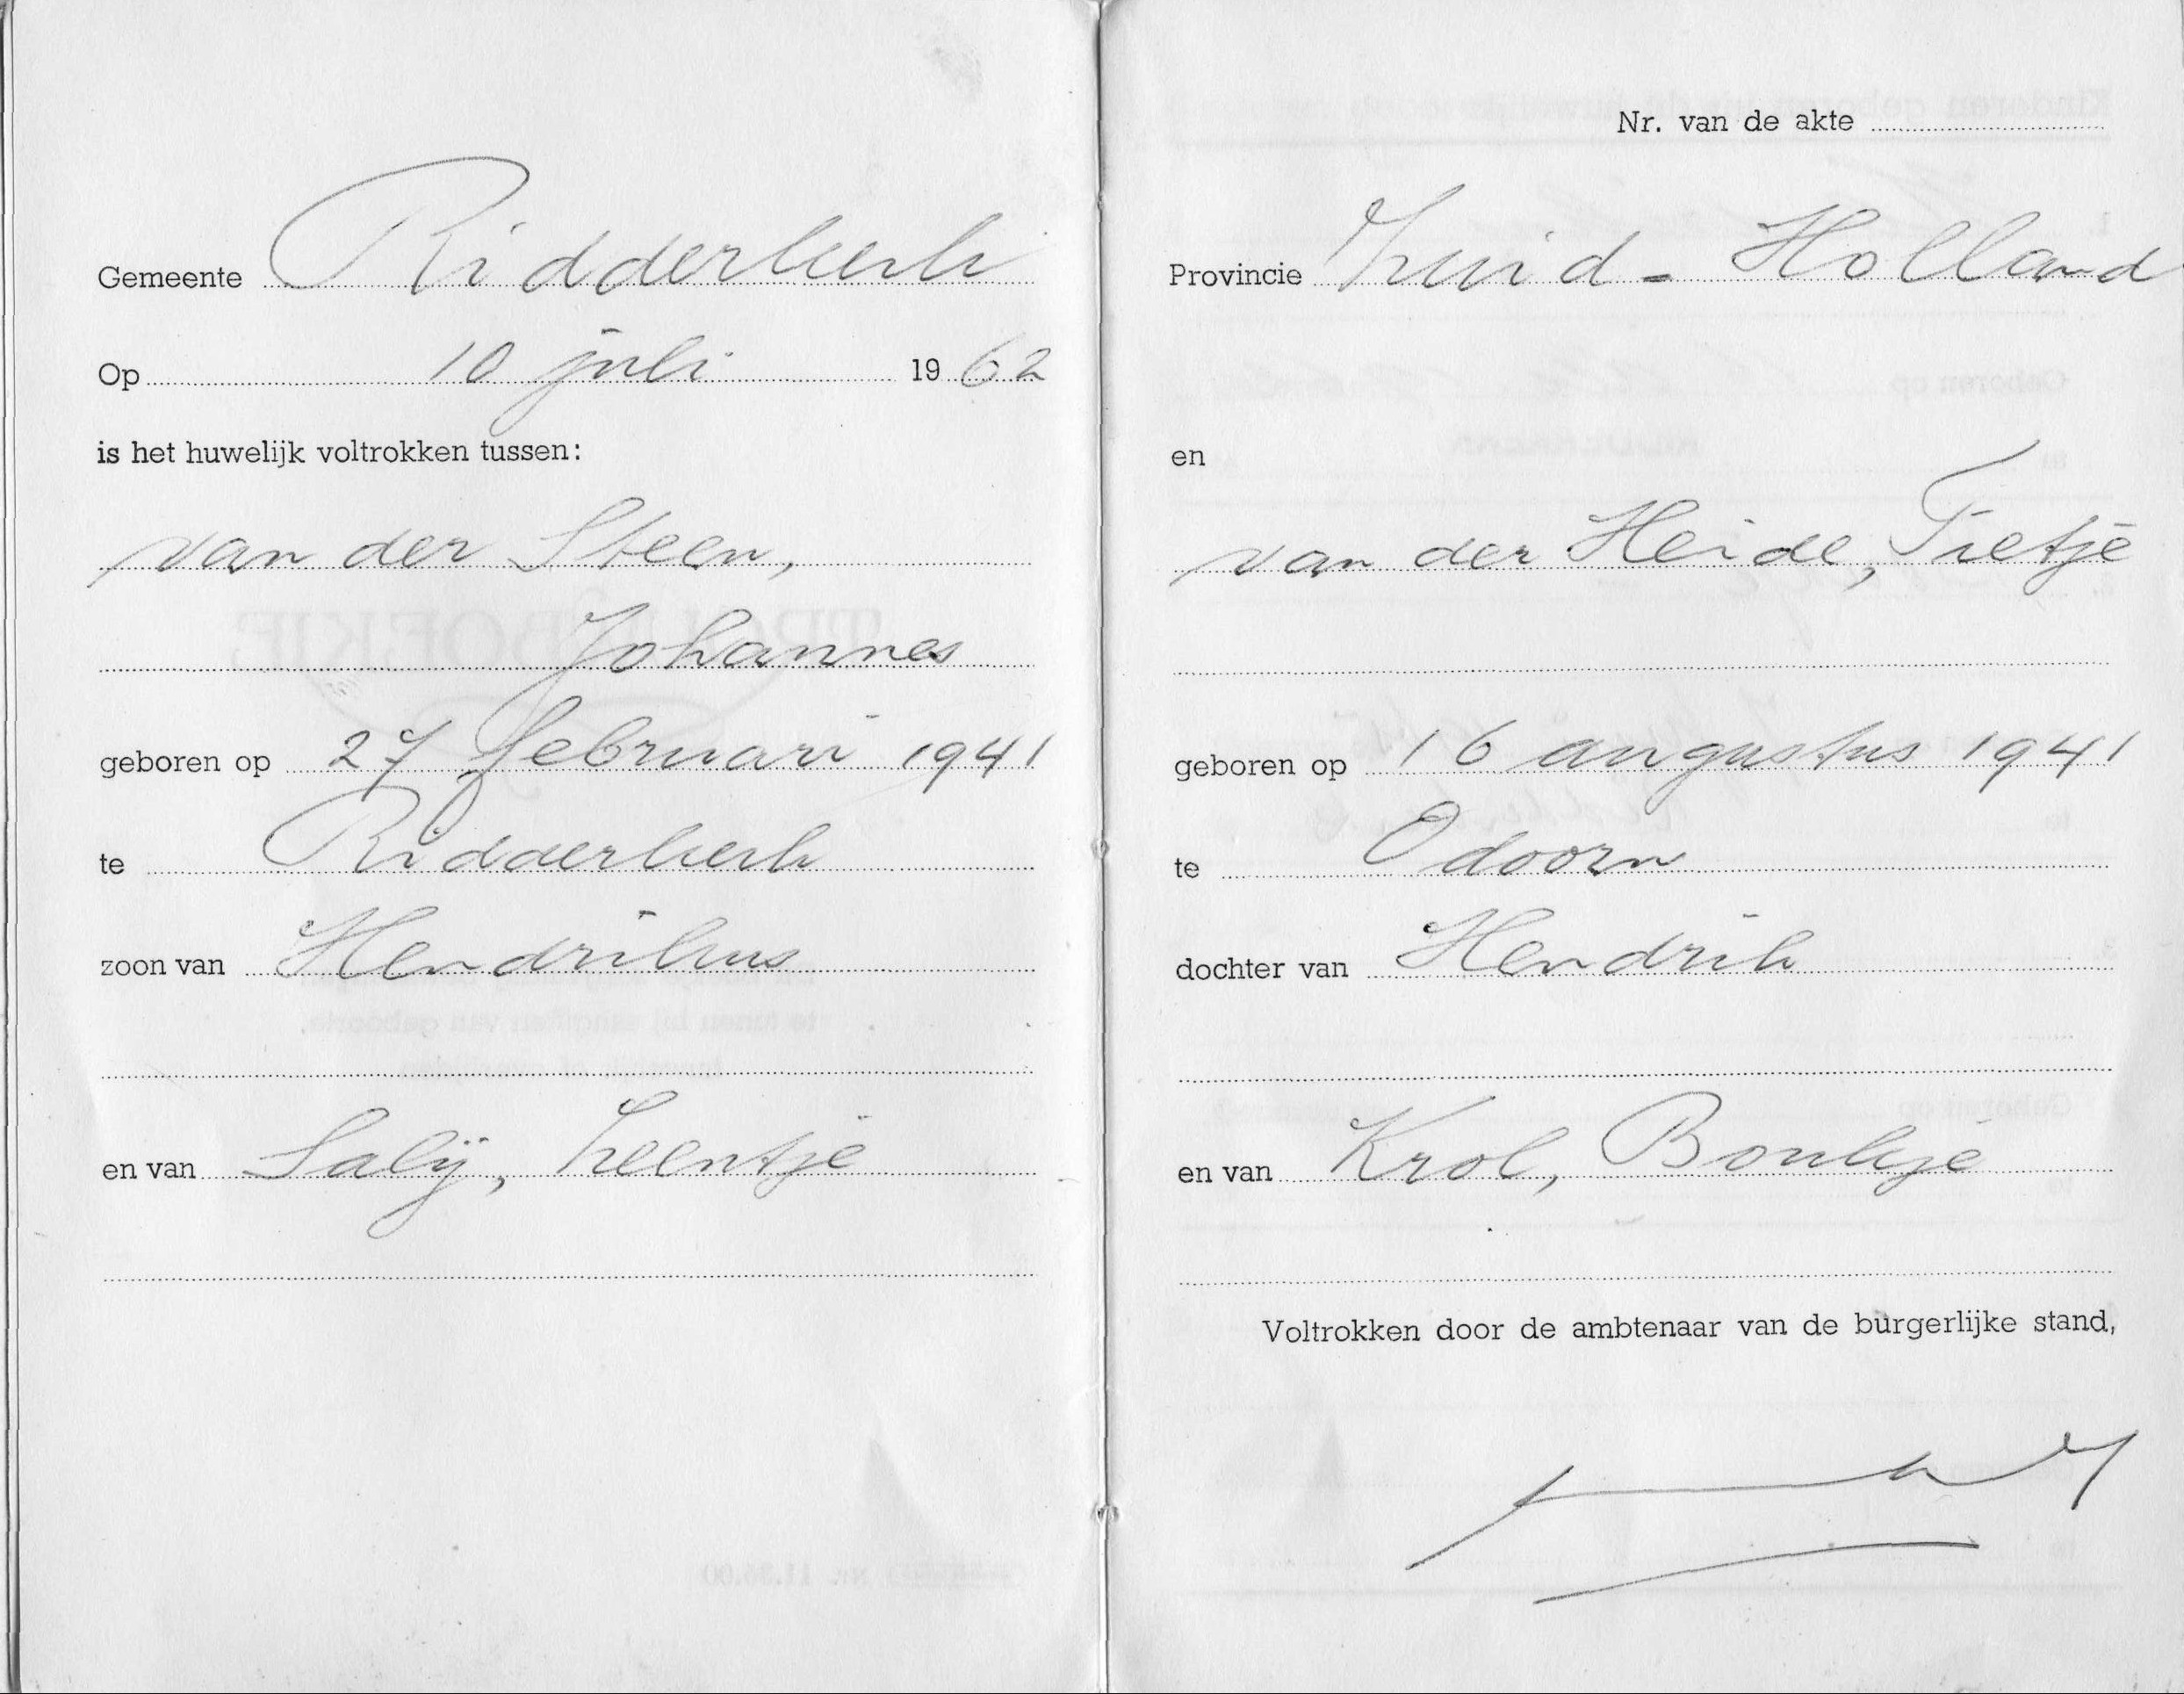 Gemeente Ridderkerk
Op 10 juli 1962
is het huwelijk voltrokken tussen:
van der Steen,
Johannes
geboren op 27 februari 1941
te Ridderkerk
zoon van Hendrikus
en van Salij, Leentje
Nr. van de akte
Provincie Zuid-Holland
en
van der Heide, Tietje
geboren op 16 augustus 1941
te Odoorn
dochter van Hendrik
en van Krol, Boukje
Voltrokken door de ambtenaar van de burgerlijke stand,